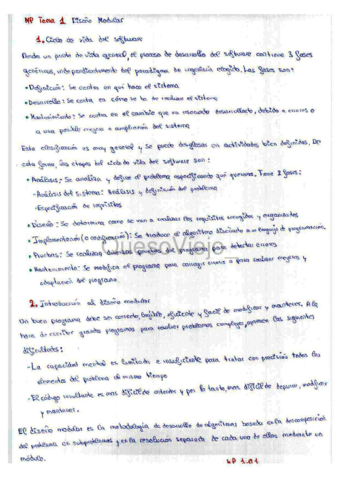 MP Tema 1 Diseño Modular
1. Ciclo de vida del software
Desde un punto de vista general, el proceso de desarrollo del software contiene 3 fases
genéricas, independientemente del paradigma de ingeniería elegido. Las fases son:
• Definición: Se centra en que hace el sistema
• Desarrollo: Se centra en cómo se ha de realizar el sistema
• Mantenimiento: Se centra en el cambio que es necesario desarrollado, debido a errores o
a una posible mejora o ampliación del sistema
Esta clasificación es muy general y se puede desglosar en actividades bien definidas. De
esta forma, las etapas del ciclo de vida del software son:
• Análisis: Se analiza y define el problema especificando qué Tiene 2 fases:
- Análisis del sistema: Análisis y definición del problema
- Especificación de requisitos
• Diseño: Se determina como se van a realizar los requisitos recogidos y organizados
• Implementación (o codificación): Se traduce el algoritmo diseñado a un lenguaje de programación.
• Pruebas: Se realizan diversas pruebas del programa para detectar errores
• Mantenimiento: Se modifica el programa para corregir errores o para realizar mejoras y
adaptaciones del programa.
QuesoViejo
2. Introducción al diseño modular
Un buen programa debe ser correcto, legible, eficiente y fácil de modificar y mantener. A la
hora de escribir grandes programas para resolver problemas complejos, aparecen las siguientes
dificultades:
- La capacidad mental es limitada e insuficiente para tratar con precisión todos los
elementos del problema al mismo tiempo
- El código resultante es más difícil de entender y por lo tanto, más difícil de depurar, modificar
y mantener.
El diseño modular es la metodología de desarrollo de algoritmos basada en la descomposición
del problema en subproblemas y en la resolución separada de cada uno de ellos mediante un
módulo.
MP 1.01